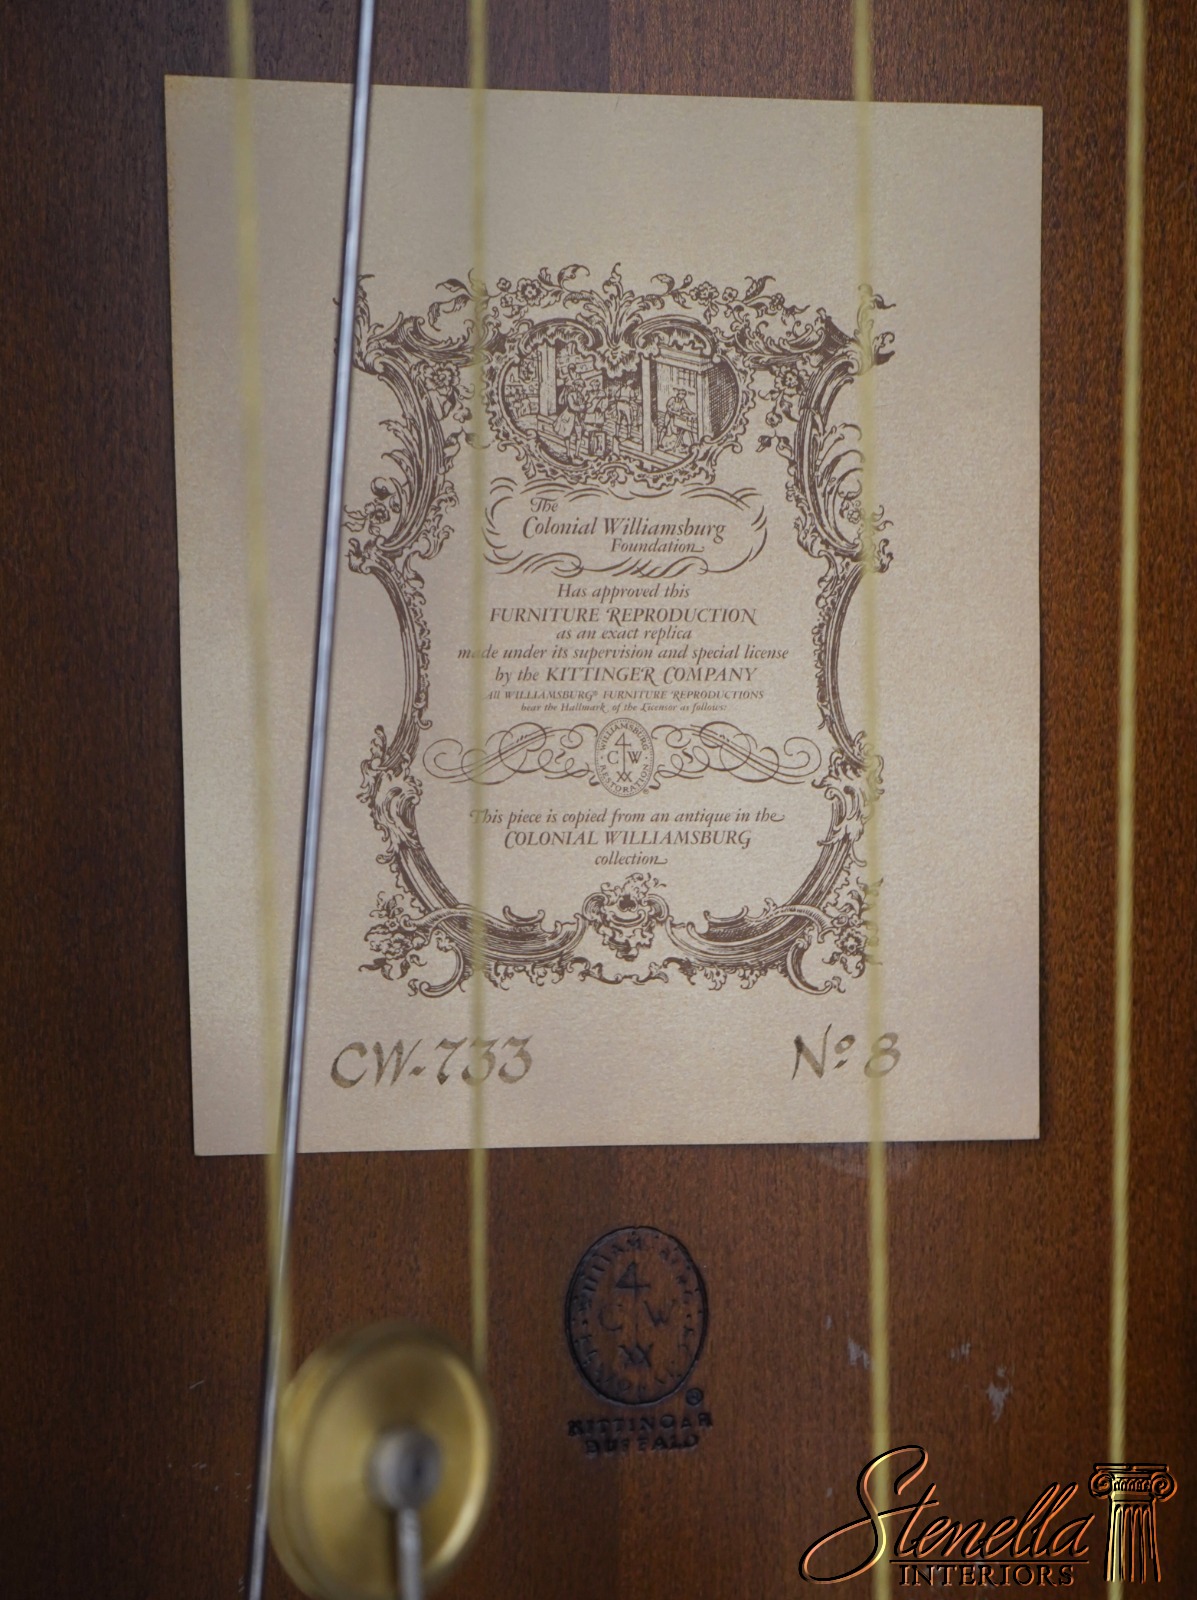 The
Colonial Williamsburg
Foundation
Has approved this
FURNITURE REPRODUCTION
as an exact replica
made under its supervision and special license
by the KITTINGER COMPANY
All WILLIAMSBURG® FURNITURE REPRODUCTIONS
bear the Hallmark of the Licensor as follows:
WILLIAMSBURG
CW
RESTORATION
®
This piece is copied from an antique in the
COLONIAL WILLIAMSBURG
collection
CW-733 Nº 8
CW
®
KITTINGER
BUFFALO
Stenella
INTERIORS